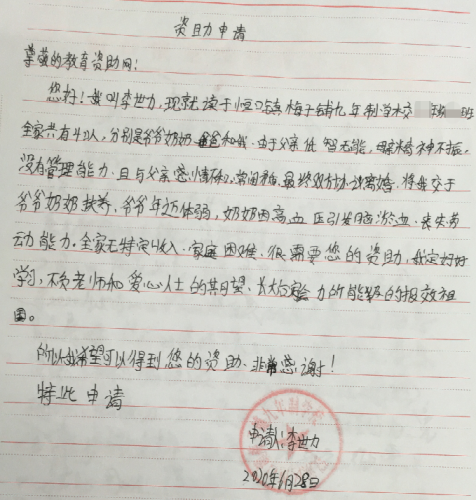 资助申请
尊敬的教育资助网:
您好!我叫李世力,现就读于恒口镇梅子铺九年制学校 班
全家共有4口人,分别是爷爷奶奶 爸爸和我.由于父亲低智无能,母亲精神不振,
没有管理能力.且与父亲感情不和, 最终双方办议离婚,将我交于
爷爷奶奶扶养,爷爷年迈体弱,奶奶因高血压引发脑淤血、丧失劳
动能力。全家无特定收入、家庭困难、很需要您的资助,我定好好
学习,不负老师和爱心人士的其月望、长大后 力所能及的报效祖
国。
所以我希望可以得到您的资助、非常感谢!
特此申请
申请人:李世力
2020年6月28日